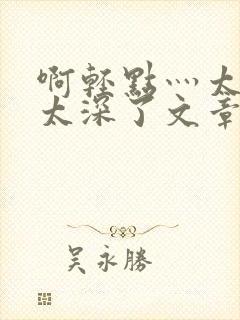 啊輕點灬太
太深了文章
吴永勝